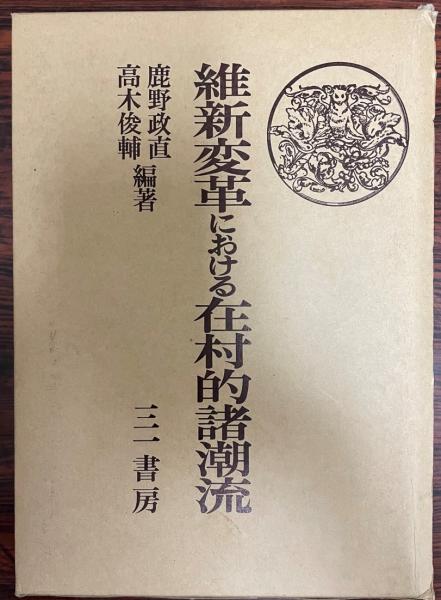 維新変革における在村的諸潮流
鹿野政直
高木俊輔 編著
三一書房